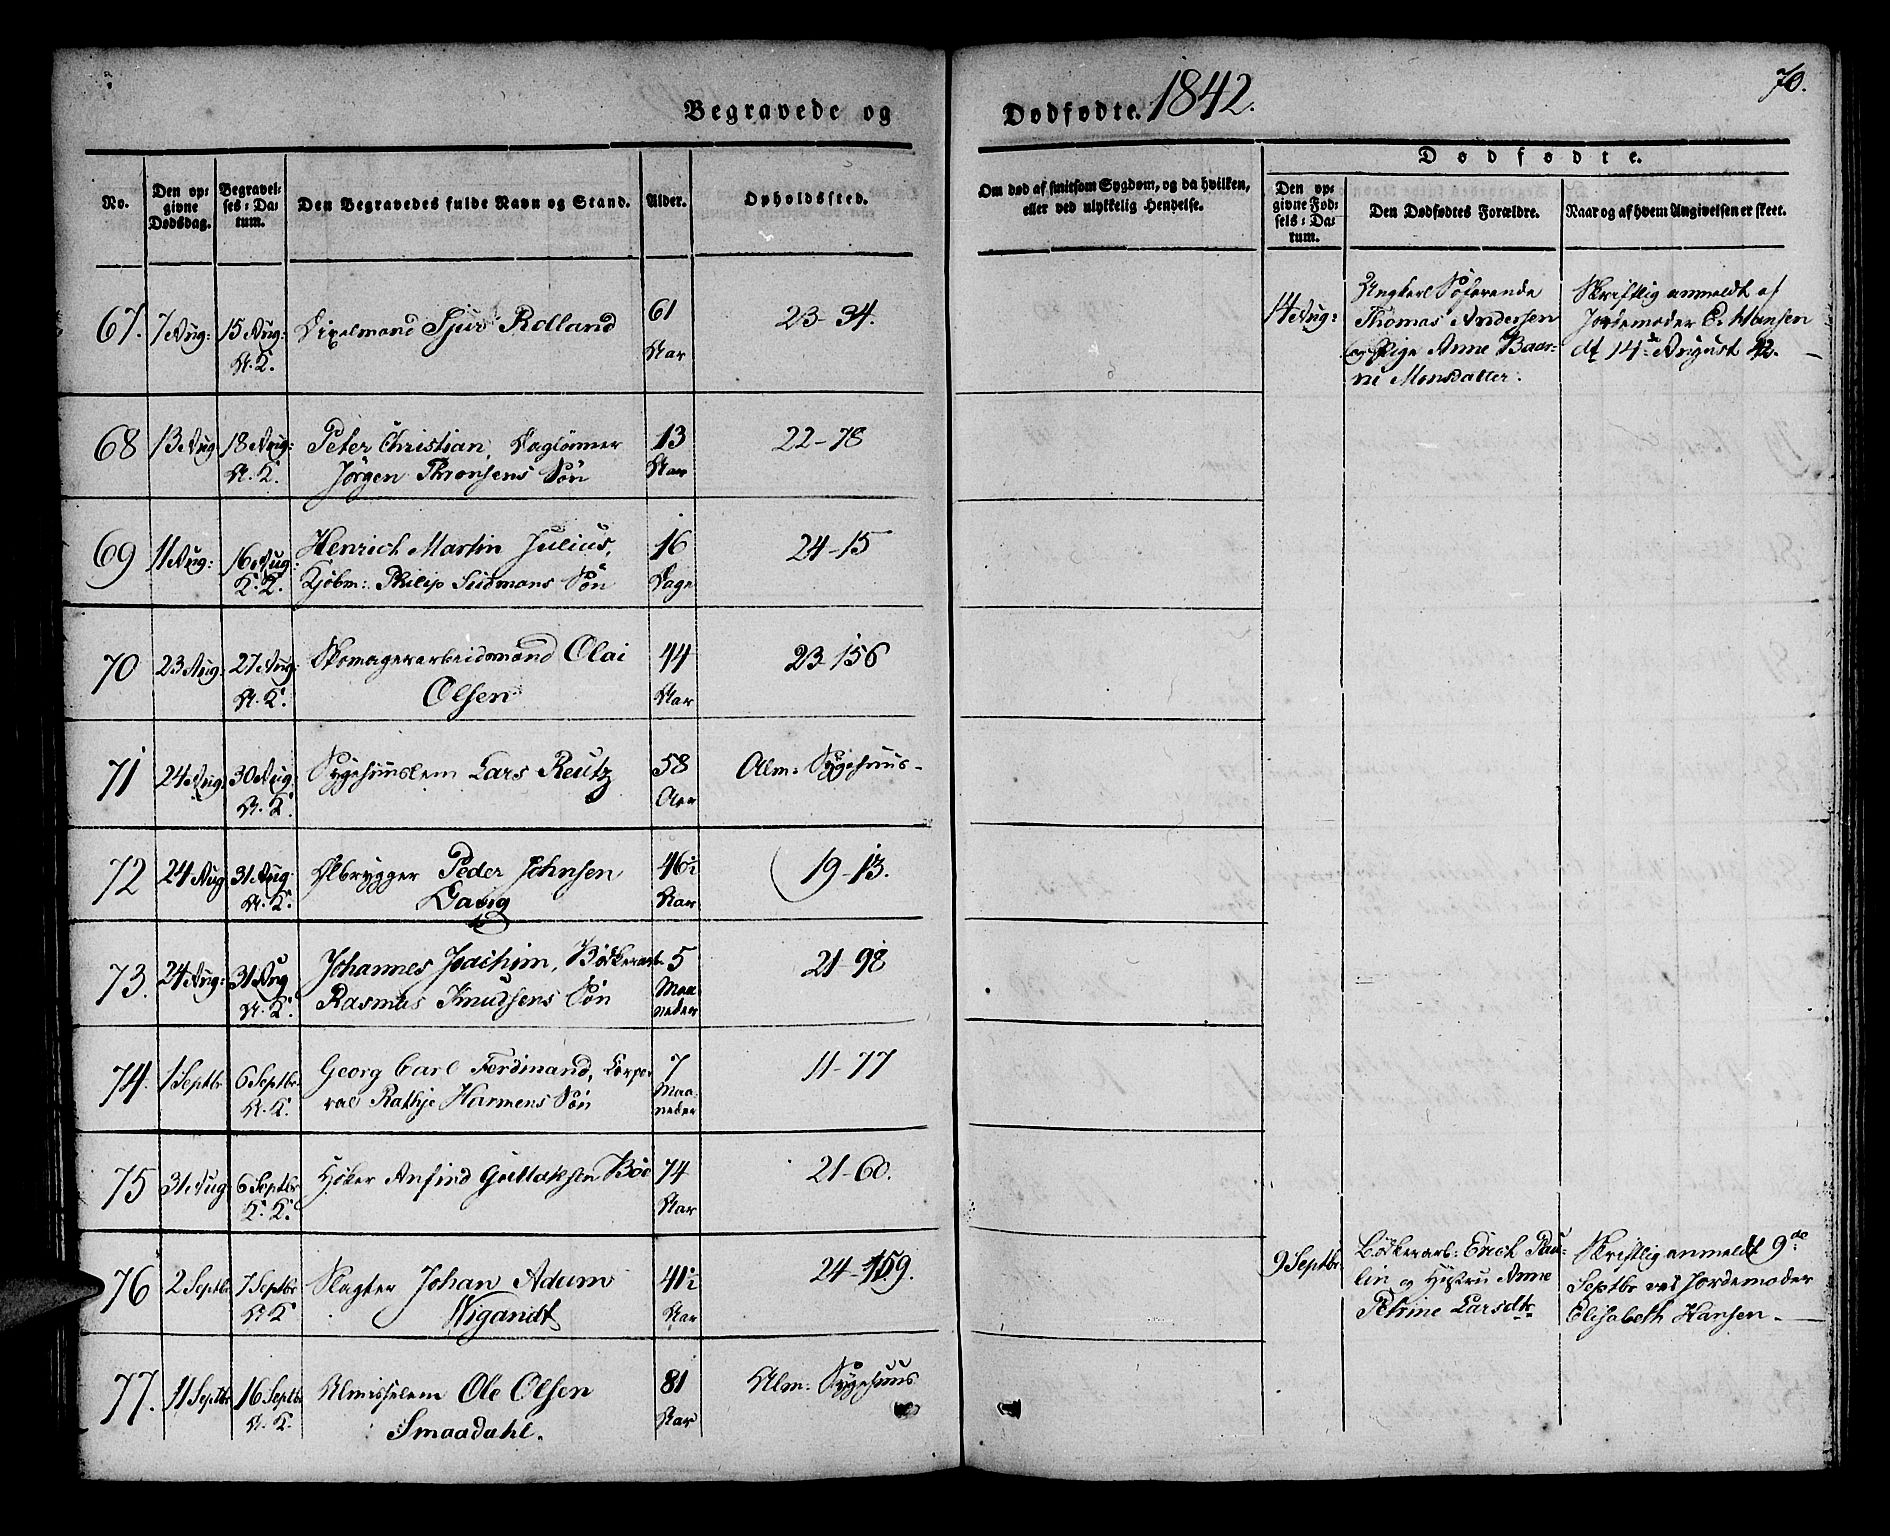 Begravede og
Dødfødte. 1842.
70.
No.
Den op-
givne
Dødsdag.
Begravel-
ses-Da-
tum.
Den Begravedes fulde Navn og Stand.
Alder.
Opholdssted.
Om død af smitsom Sygdom, og da hvilken,
eller ved ulykkelig Hendelse.
Dødfødte.
Den op-
givne Fød-
sels-Da-
tum.
Den Dødfødtes Forældre.
Naar og af hvem Angivelsen er skeet.
67. 7 Aug: 15 Aug: Sjur Rolland 61 23-34.
Aar
68 13 Aug 18 Aug: Peter Christian, Daglønner 13 22-78
Jörgen Thronsens Søn Aar
69 11 Aug: 16 Aug: Henrich Martin Julius, 16 24-15
K. K. Kjøbm: Philip Sudmans Søn Dage
70 23 Aug: 27 Aug: Skomagerarbeidsmand Olai 44 23-156
Olsen Aar
71 24 Aug: 30 Aug: Sygehuuslem Lars Reutz 58 Alm: Sygehuus-
Aar
72 24 Aug 31 Aug: Ølbrygger Peder Johnsen 46½ 19-13.
Davig Aar
73. 24 Aug: 31 Aug Johannes Joachim, Bødkerarb 5 21-98
Rasmus Knudsens Søn Maa
neder
74. 1 Septbr 6 Septbr. Georg Carl Ferdinand, Corpo- 7 11-77
ral Rathje Harmens Søn Maa-
neder
75 31 Aug 6 Septbr Høker Anfind Gullaksen Böe 74 21-60.
K. K. Aar
76 2 Septbr 7 Septbr Slagter Johan Adam 41½ 24-159.
Wigandt Aar
77. 11 Septbr 16 Septbr Almisselem Ole Olsen 81 Alm: Sygehuus
Smaadahl. Aar
14 Aug: Ungkarl Søfarende
Thomas Andersen
og Pige Anne Baar-
ni Monsdatter.
Skriftlig anmeldt af
Jordemoder E. Hansen
dt 14de August 42.
9 Septbr. Bødkerarb: Erich Pau-
lin og Hustru Anne
Petrine Larsdtr
Skriftlig anmeldt 9de
Septbr ved Jordemoder
Elisabeth Hansen